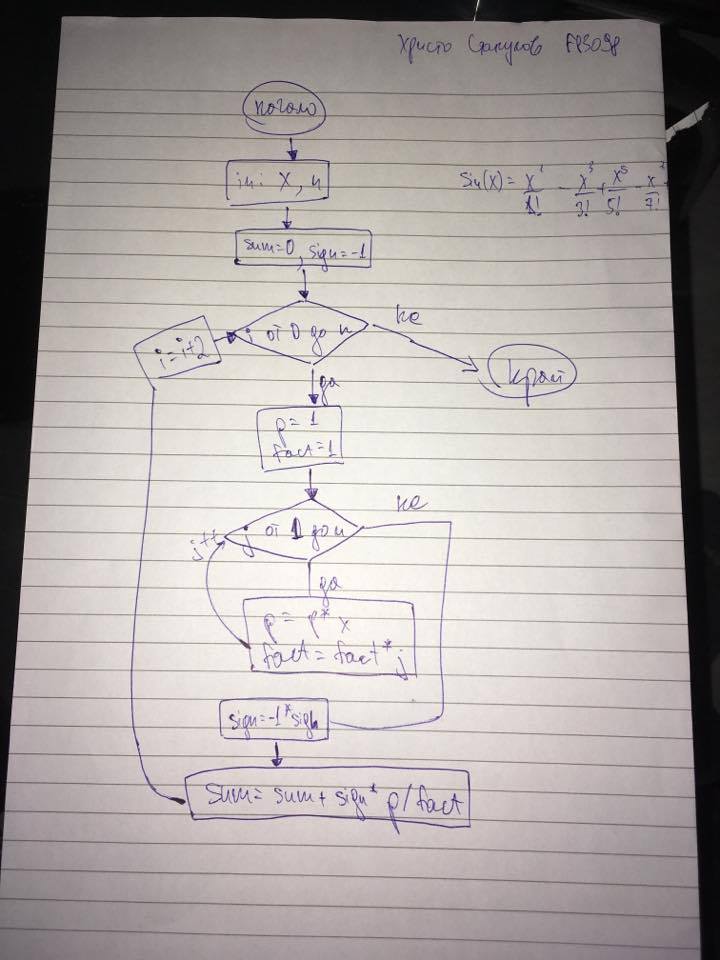 Христо
начало
in: x, n
Sin(x) = x^1/1! - x^3/3! + x^5/5! - x^7/7! +
sum=0, sign=-1
i от 0 до n
не
i=i+2
край
да
p=1
fact=1
не
j++
j от 1 до n
да
p = p*x
fact = fact*j
sign=-1*sign
sum= sum+ sign* p/fact